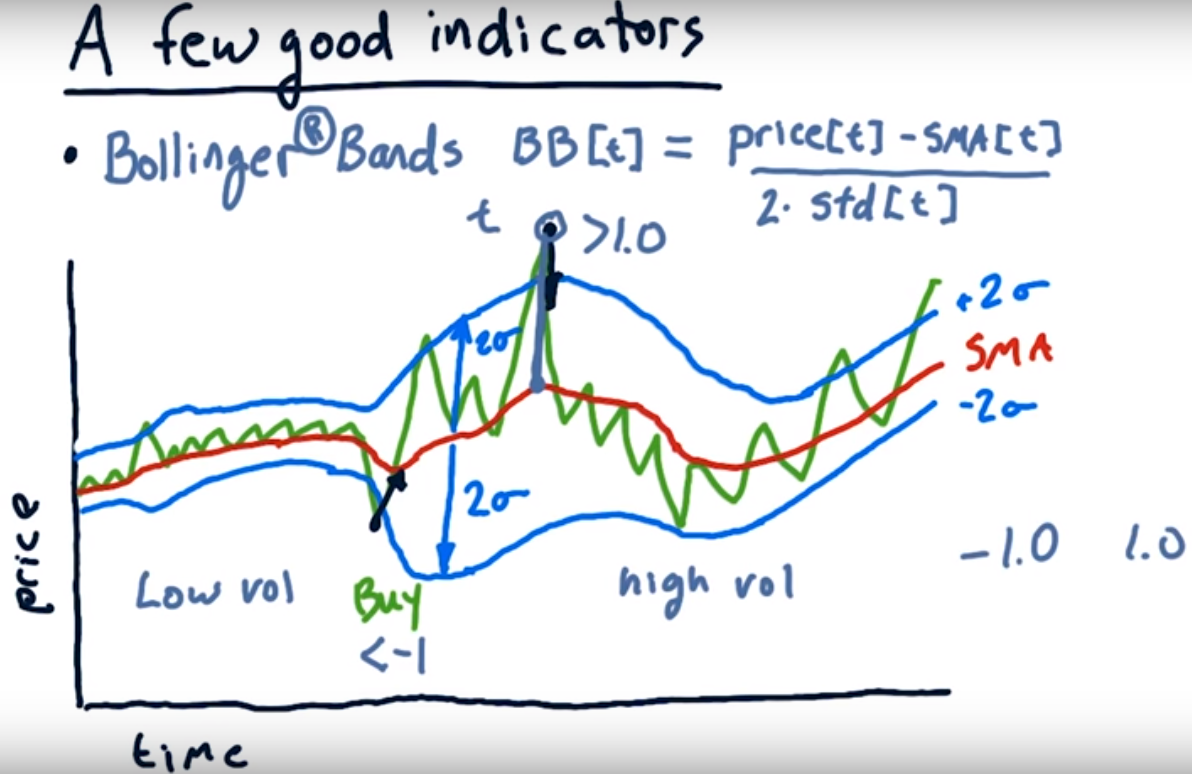 A few good indicators
• Bollinger® Bands BB[t] = price[t] - SMA[t]
2. std[t]
t >1.0
+2σ
2σ
SMA
-2σ
2σ
price
-1.0 1.0
Low vol
Buy
high vol
<-1
time